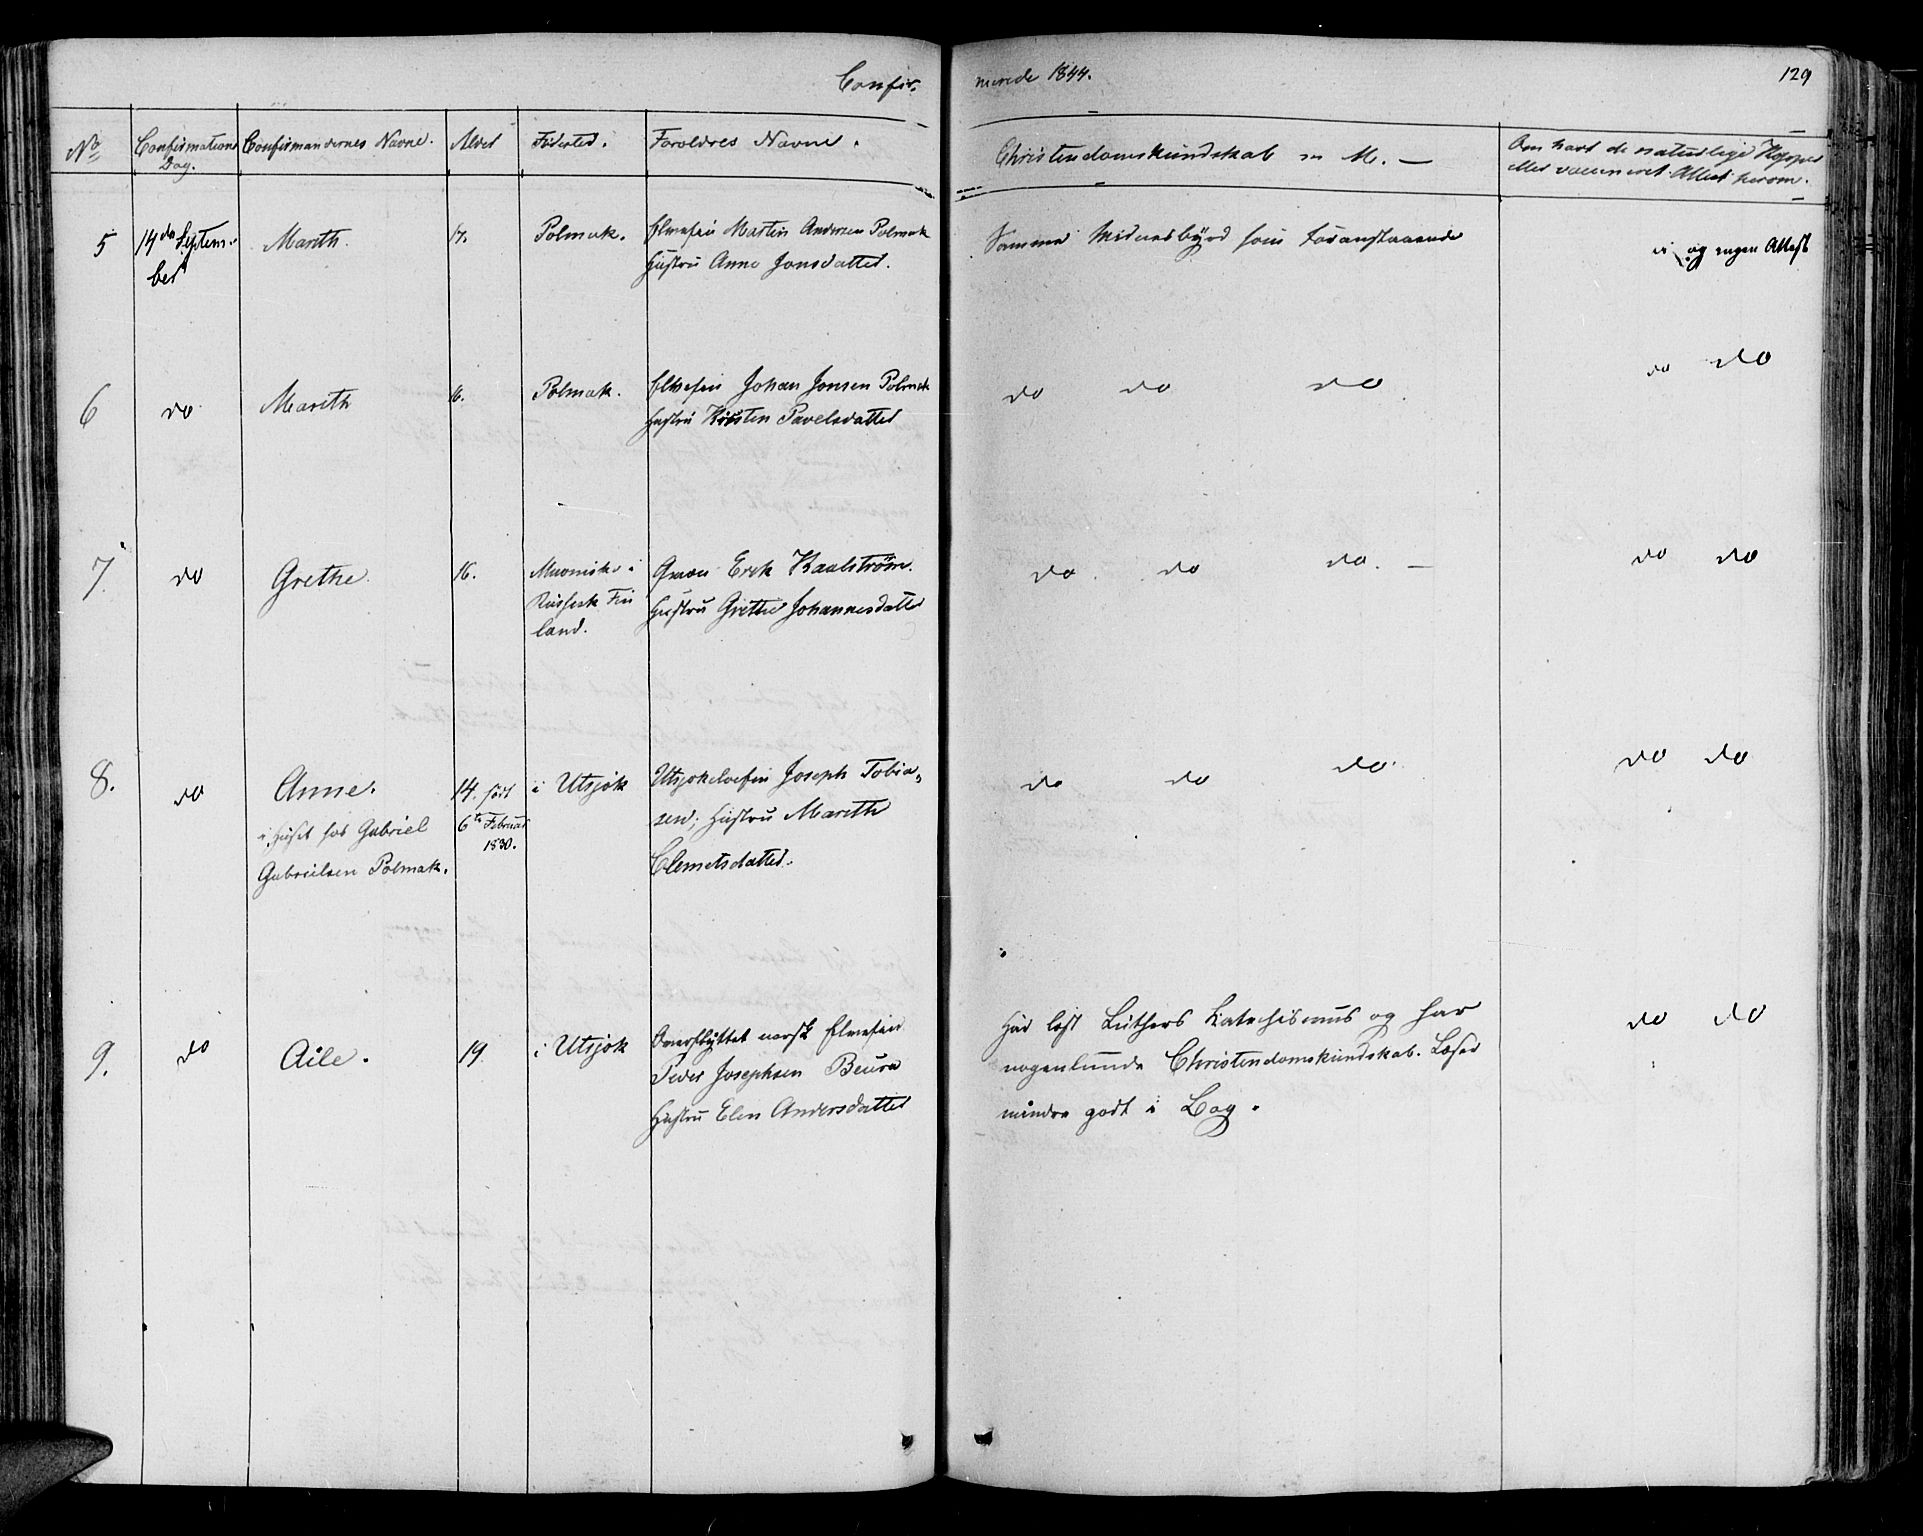 Confir-
merede 1844.
129
No
Confirmations Dag.
Confirmandernes Navne.
Alder
Födested.
Foroldres Navne.
Christendomskundskab m M. —
Om havt de naturlige Kopper
eller vaccineret. Attest herom.
5
14de Septem-
ber
Mareth.
17.
Polmak.
Elvefin Mathis Andersen Polmak
Hustru Anne Jonsdatter.
Samme Vidnesbyrd som foranstaaende
og ingen Attest
6
do
Mareth
16.
Polmak.
Elvefin Johan Jonsen Polmak
Hustru Kirsten Pavelsdatter
do do do
do do
7.
do
Grethe.
16.
Muoniske i
Russisk Fin
land.
Qvæn Erik Kaalström.
Hustru Grethe Johannesdatter
do do do. —
do do
8.
do
Anne.
i Huset hos Gabriel
Gabrielsen Polmak.
14. født
6te Februar
1830.
i Utsjok
Utsjokelvefin Joseph Tobia-
sen; Hustru Mareth
Clemetsdatter.
do do do.
do do
9.
do
Aile.
19.
i Utsjok
Overflyttet norsk Elvefin
Peder Josephsen Beura
Hustru Elen Andersdatter
Har læst Luthers Katechismus og har
nogenlunde Christendomskundskab. Læser
mindre godt i Bog.
do do